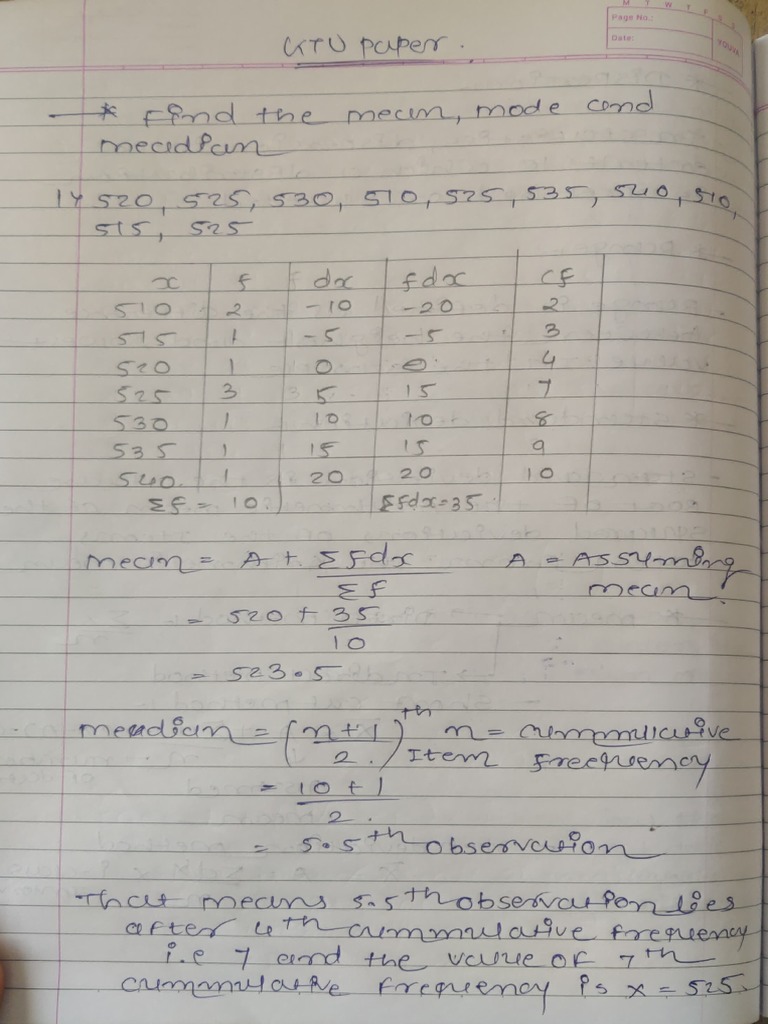 M T W T F S S
Page No.:
Date:
YOUVA
GTU paper.
* Find the mean, mode and
meadian
1) 520, 525, 530, 510, 525, 535, 540, 510,
515, 525
x f dx fdx cf
510 2 -10 -20 2
515 1 -5 -5 3
520 1 0 0 4
525 3 5 15 7
530 1 10 10 8
535 1 15 15 9
540 1 20 20 10
Σf = 10 Σfdx=35
mean = A + Σfdx A = Assuming
Σf mean
= 520 + 35
10
= 523.5
meadian = (n+1 / 2)th n = cummulative
Item freequency
= 10 + 1
2
= 5.5th observation
That means 5.5th observation lies
after 4th cummulative frequency
i.e 7 and the value of 7th
cummulative frequency is x = 525